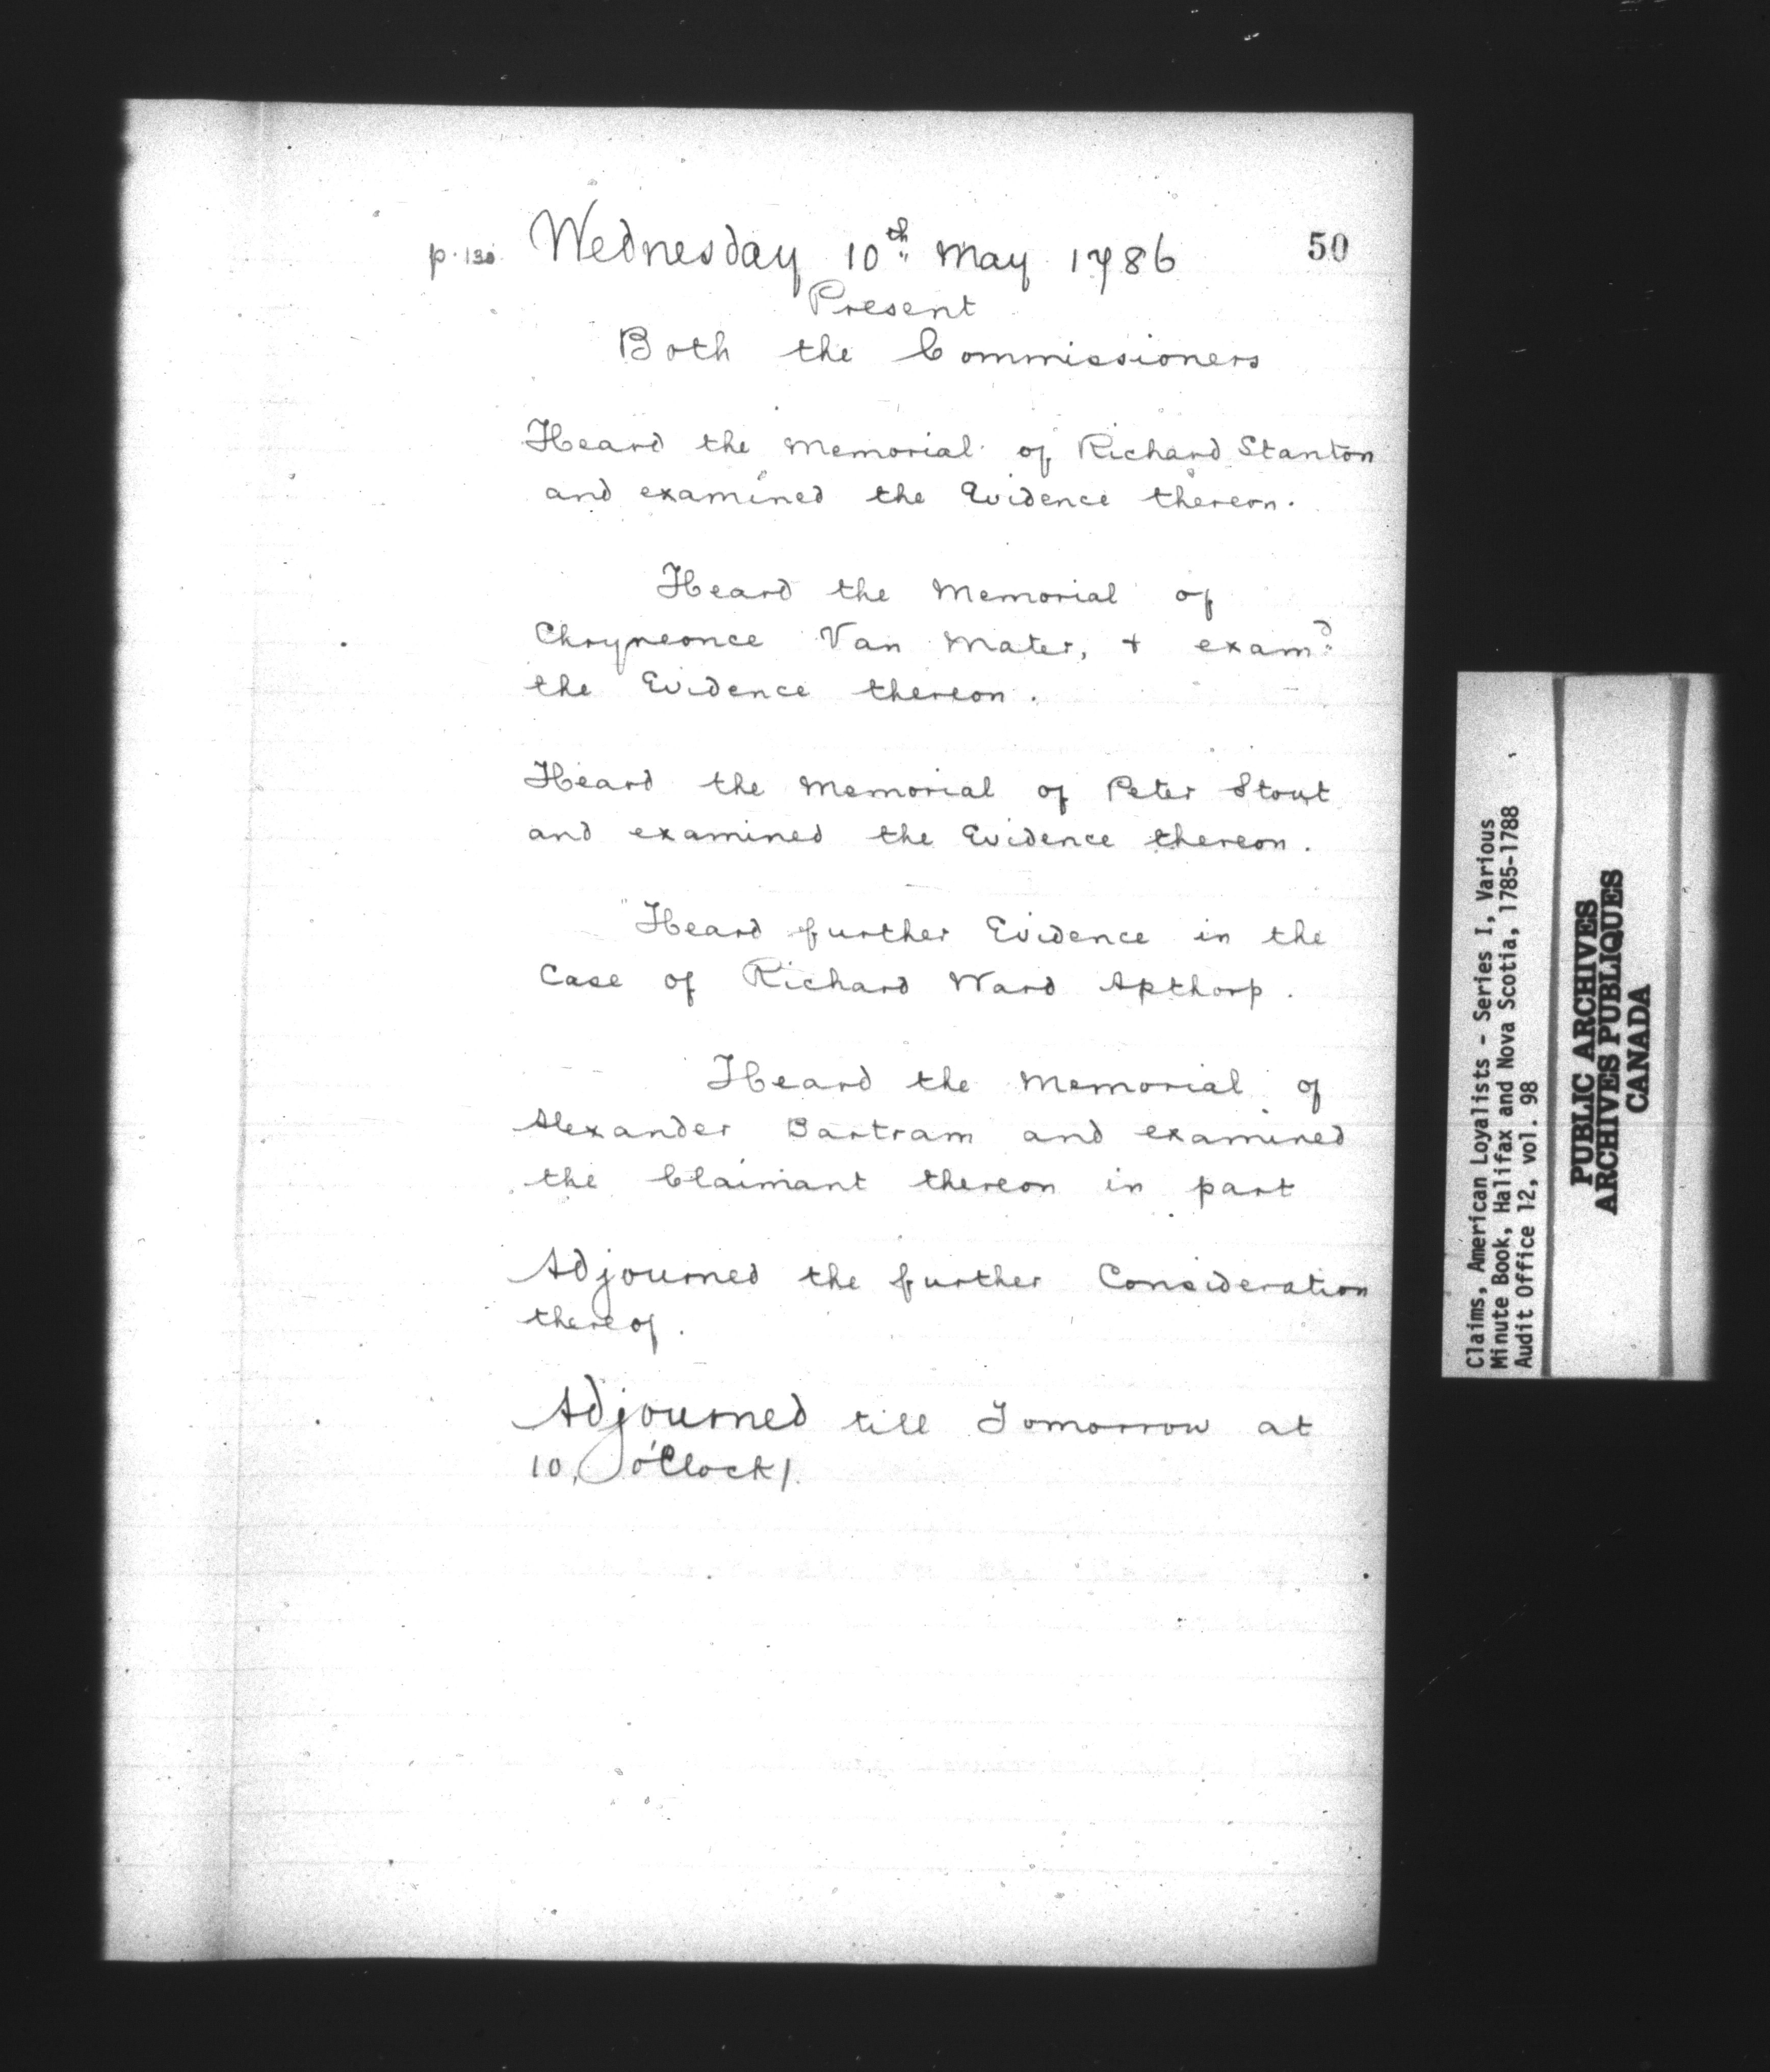 p. 130 Wednesday 10th May 1786 50
Present
Both the Commissioners
Heard the Memorial of Richard Stanton
and examined the Evidence thereon.
Heard the Memorial of
Van Mater, + examd
the Evidence thereon.
Heard the Memorial of Peter Stout
and examined the Evidence thereon.
Heard further Evidence in the
Case of Richard Ward Apthorp.
Heard the Memorial of
Alexander Bartram and examined
the Claimant thereon in part
Adjourned the further Consideration
thereof.
Adjourned till Tomorrow at
10, o'Clock/.
Claims, American Loyalists - Series I, Various
Minute Book, Halifax and Nova Scotia, 1785-1788
Audit Office 12, vol. 98
PUBLIC ARCHIVES
ARCHIVES PUBLIQUES
CANADA